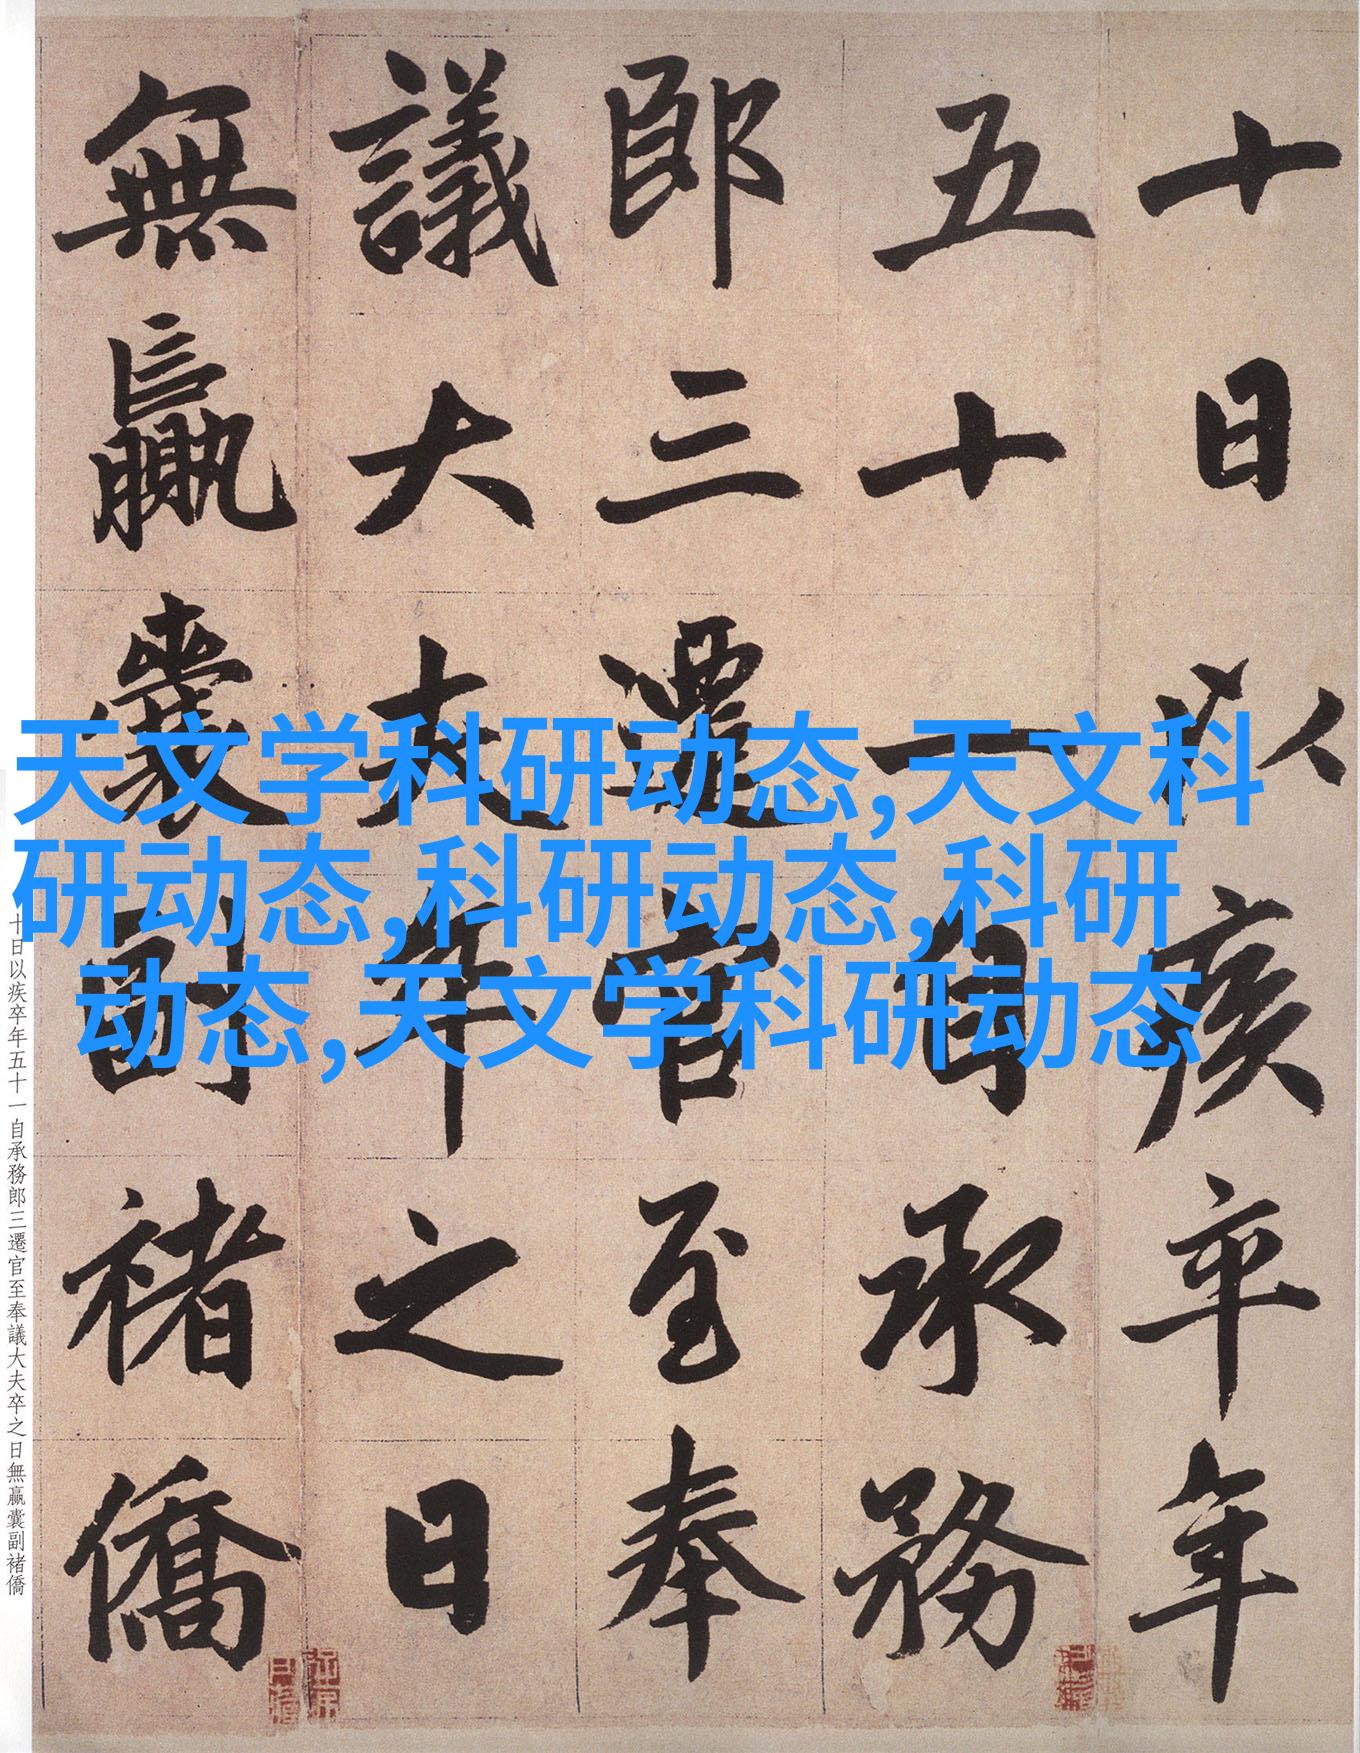 十日以疾卒年
五十一自承務
郎三遷官至奉
議大夫卒之日
無贏囊副褚僑
天文学科研动态,天文科
研动态,科研动态,科研
动态,天文学科研动态
十日以疾卒年五十一自承務郎三遷官至奉議大夫卒之日無贏囊副褚僑